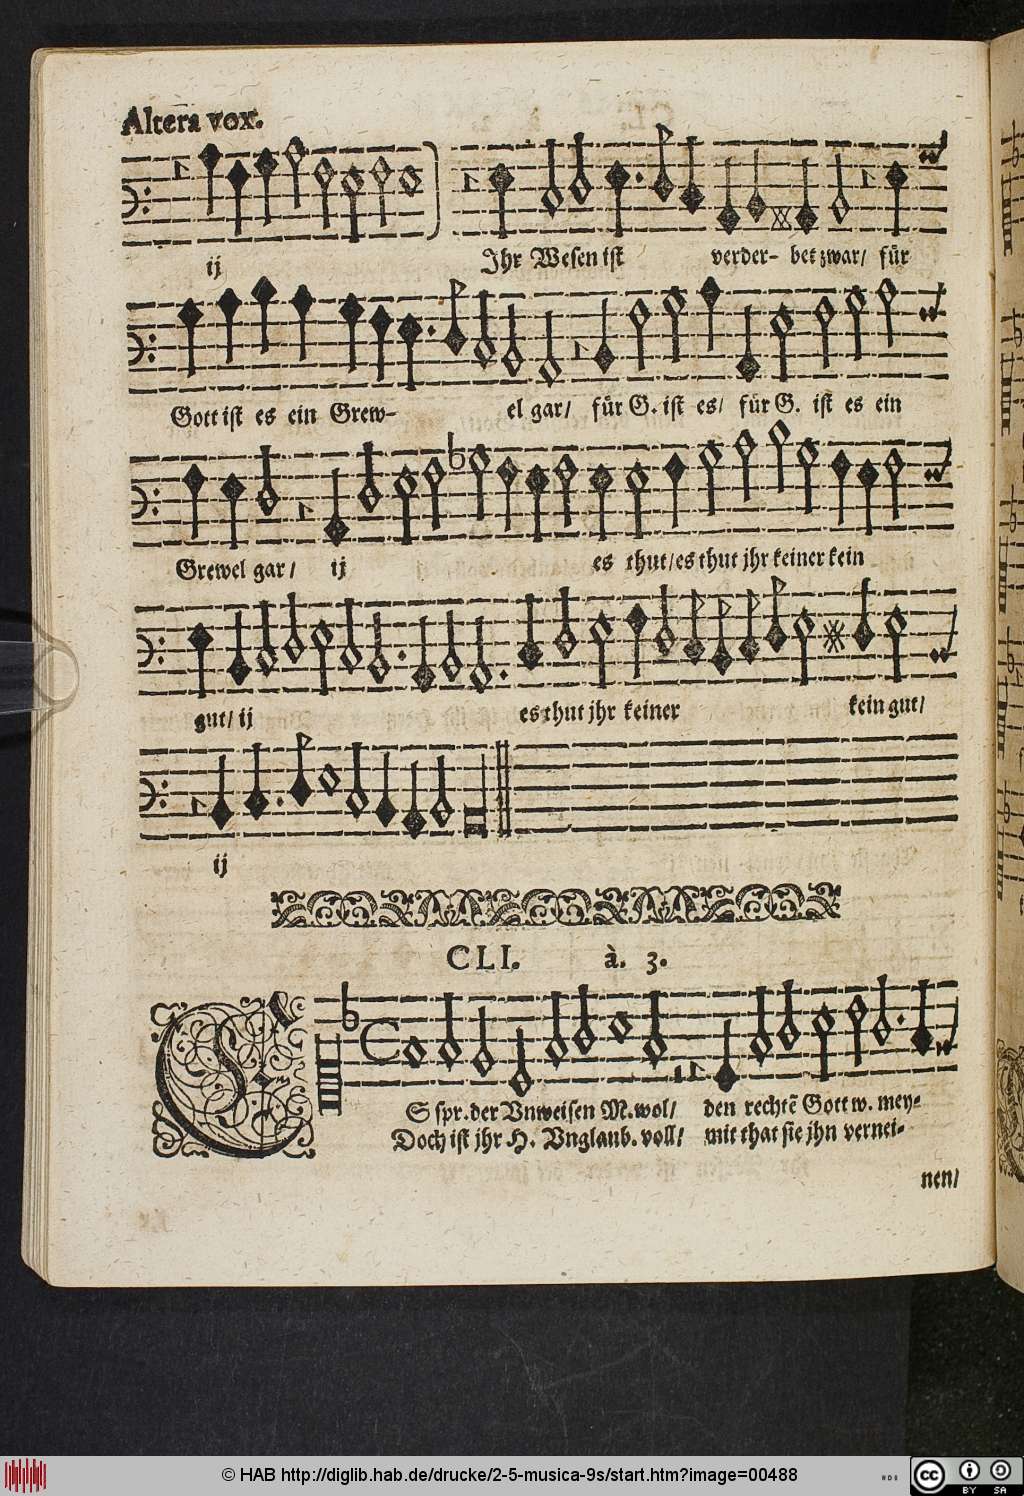 Altera vox.
ij Jhr Wesen ist verder- bet zwar/ für
Gott ist es ein Grew- el gar/ für G. ist es/ für G. ist es ein
Grewel gar/ ij es thut/es thut jhr keiner kein
gut/ ij es thut jhr keiner kein gut/
ij
CLI. à. 3.
ES spr. der Vnweisen M. wol/ den rechtē Gott w. mey-
Doch ist jhr H. Vnglaub. voll/ mit that sie jhn vernei-
nen/
© HAB http://diglib.hab.de/drucke/2-5-musica-9s/start.htm?image=00488
cc BY SA